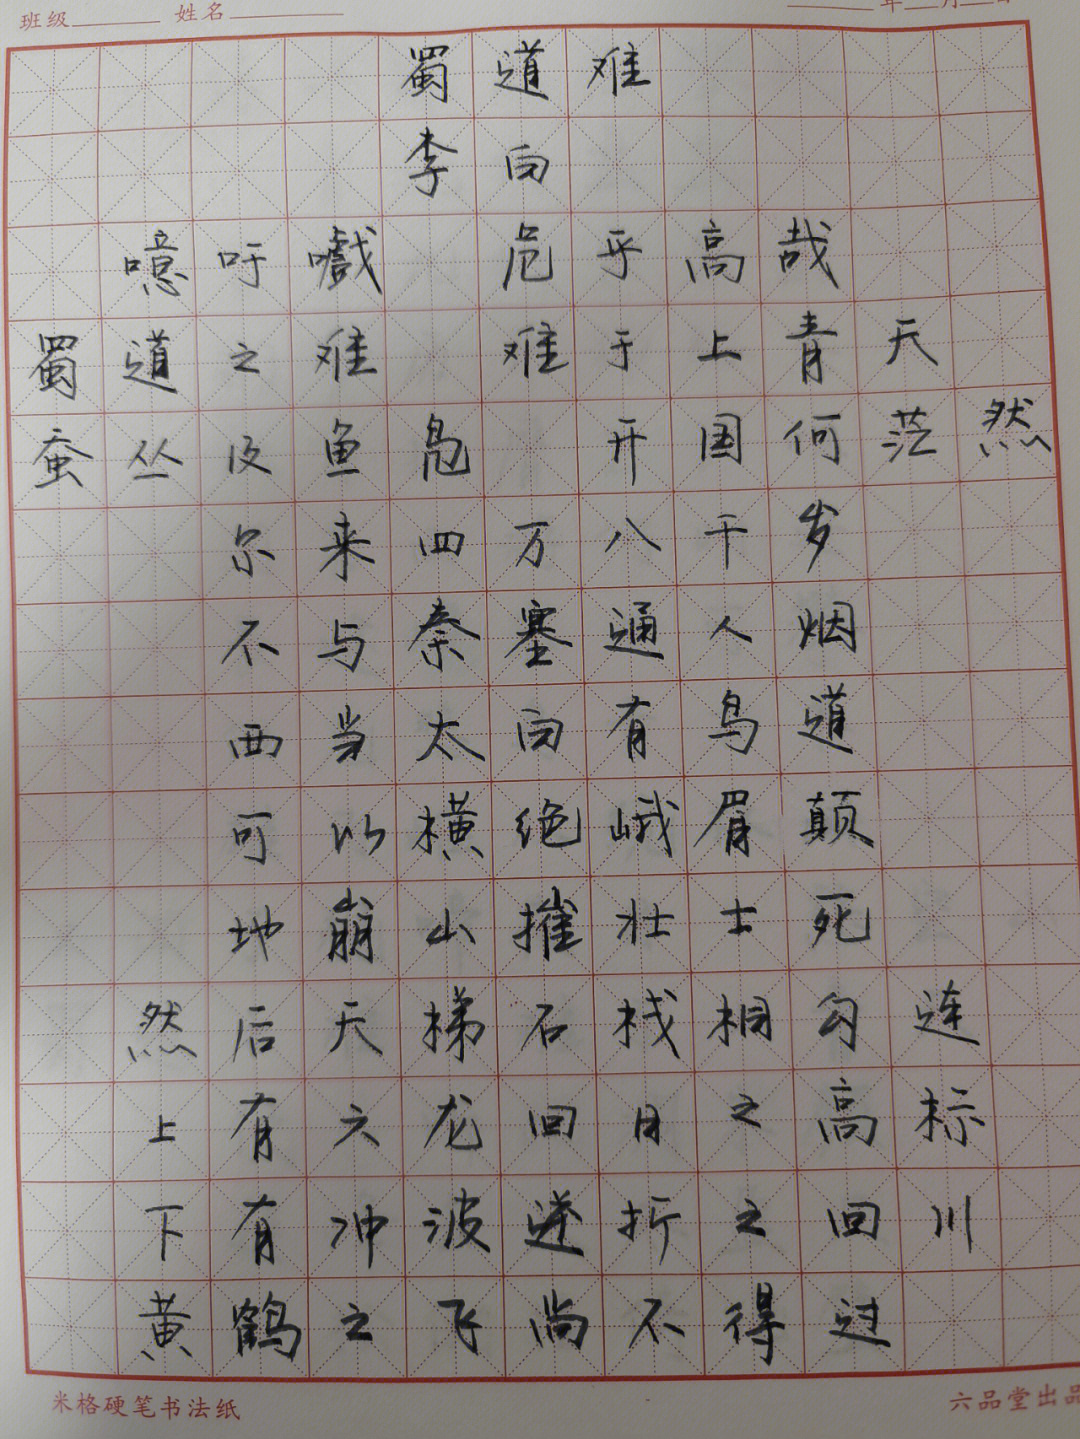 班级 姓名 年 月
蜀道难
李白
噫吁嚱 危乎高哉
蜀道之难 难于上青天
蚕丛及鱼凫 开国何茫然
尔来四万八千岁
不与秦塞通人烟
西当太白有鸟道
可以横绝峨眉颠
地崩山摧壮士死
然后天梯石栈相勾连
上有六龙回日之高标
下有冲波逆折之回川
黄鹤之飞尚不得过
米格硬笔书法纸 六品堂出品